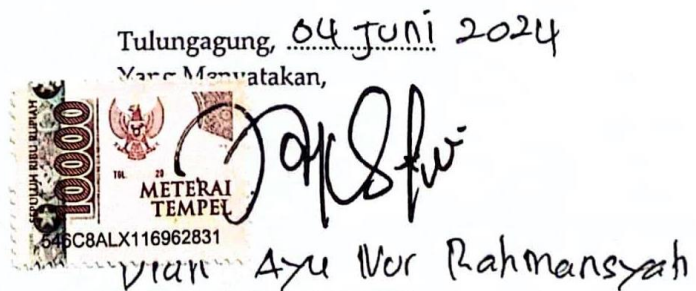 Tulungagung, 04 Juni 2024
Yang Menyatakan,
SEPULUH RIBU RUPIAH
10000
TGL. 20
METERAI
TEMPEL
546C8ALX116962831
Dian Ayu Nur Rahmansyah